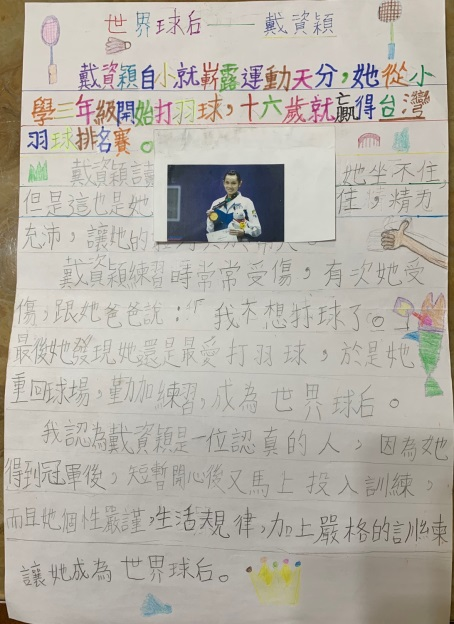 世界球后——戴資穎
戴資穎自小就嶄露運動天分,她從小
學三年級開始打羽球,十六歲就贏得台灣
羽球排名賽。
戴資穎讀 她坐不住,
但是這也是她 住,精力
充沛,讓她的
戴資穎練習時常常受傷,有次她受
傷,跟她爸爸說:「我不想打球了。」
最後她發現她還是最愛打羽球,於是她
重回球場,勤加練習,成為世界球后。
我認為戴資穎是一位認真的人,因為她
得到冠軍後,短暫開心後又馬上投入訓練,
而且她個性嚴謹,生活規律,加上嚴格的訓練
讓她成為世界球后。